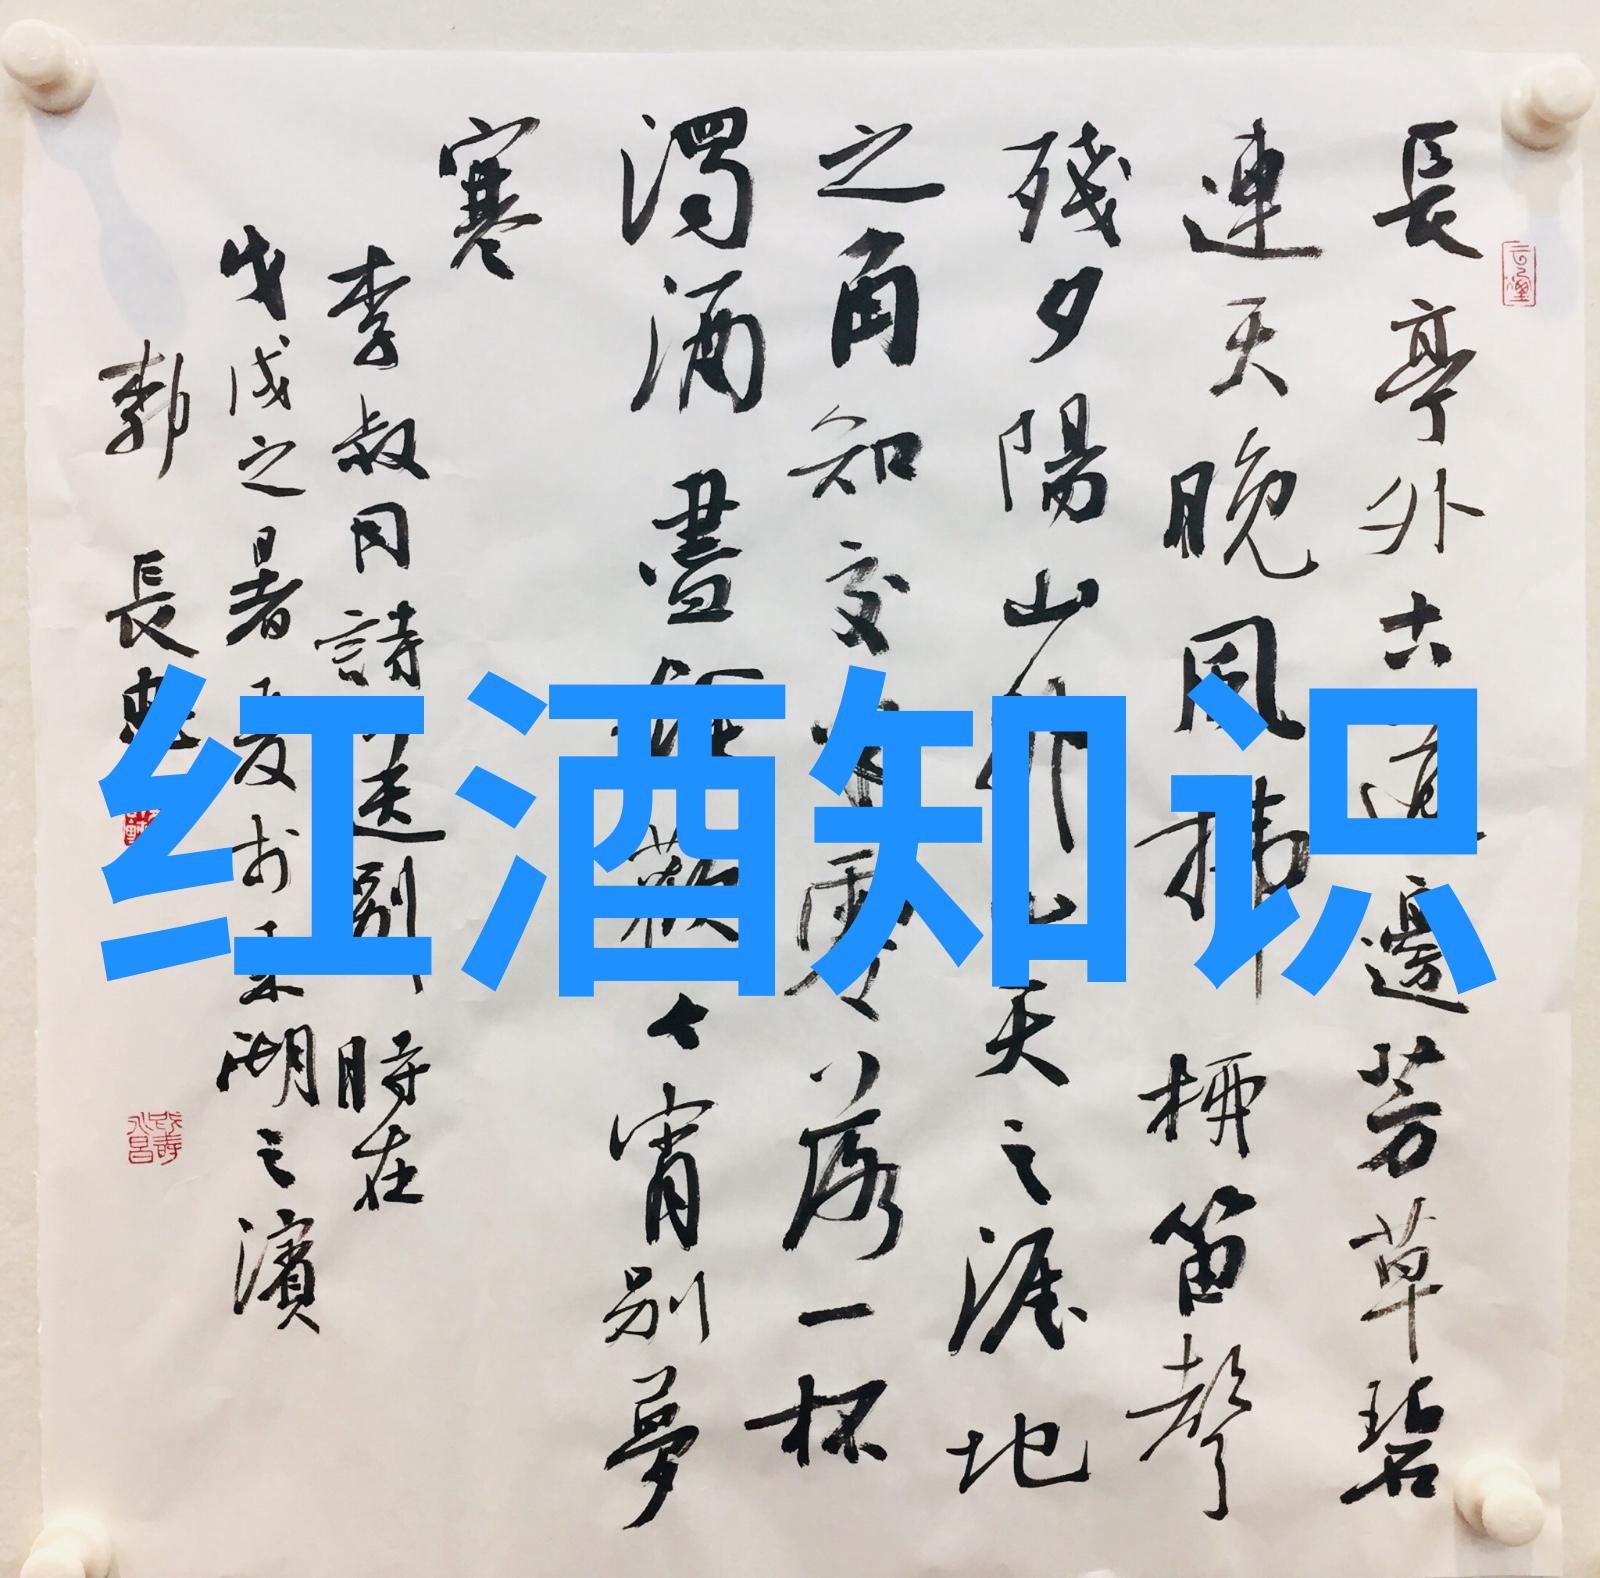 長亭外古道邊芳草碧
連天晚風拂柳笛聲
殘夕陽山外山天之涯地
之角知交半零落一杯
濁酒盡餘歡今宵別夢
寒
李叔同詩送别時在
戊戌之暑夏於東湖之濱
郭長
红酒知识